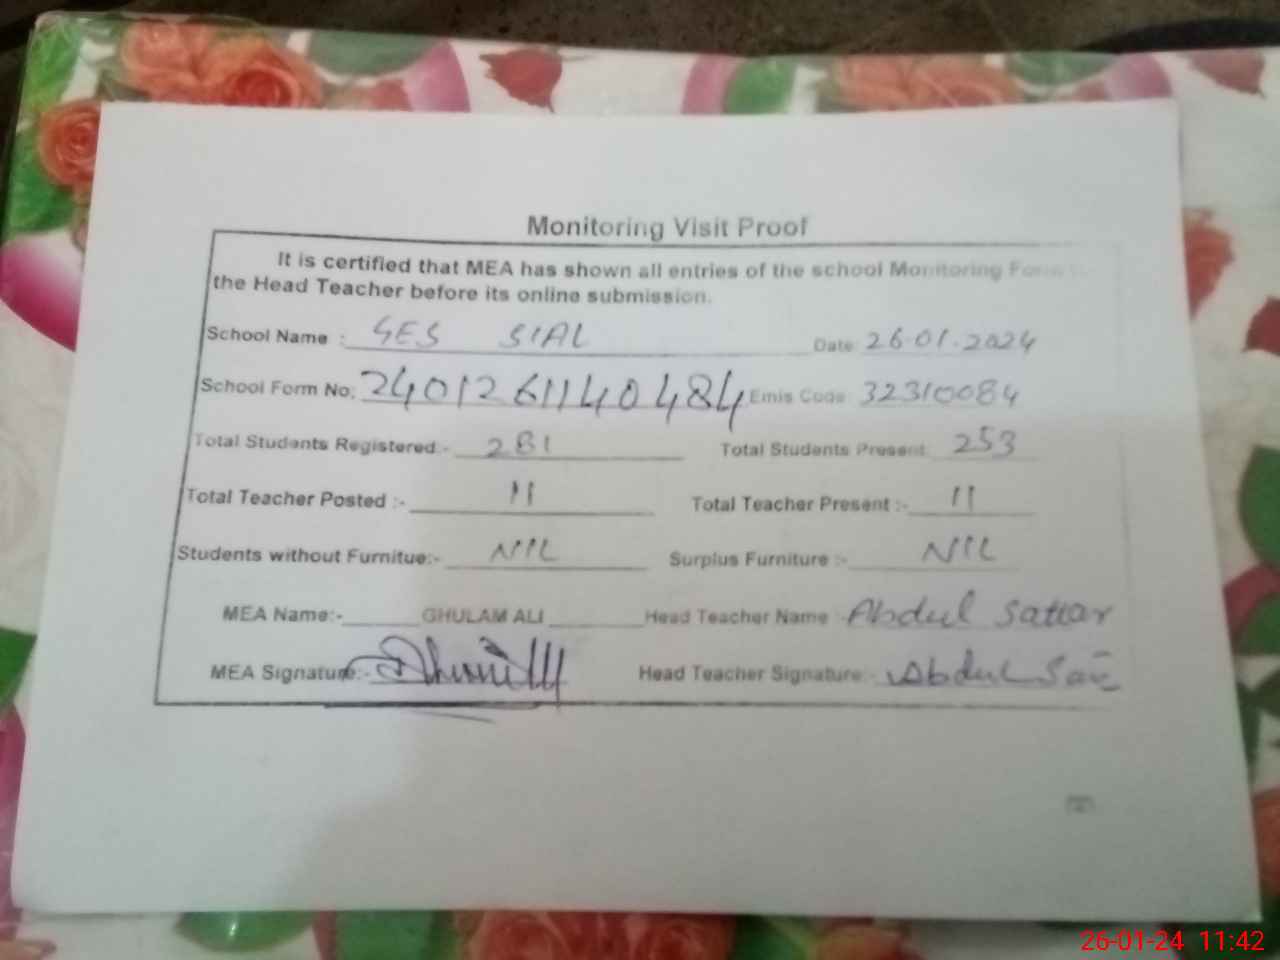 Monitoring Visit Proof
It is certified that MEA has shown all entries of the school Monitoring Form to
the Head Teacher before its online submission.
School Name : GES SIAL Date 26.01.2024
School Form No: 240126114 0484 Emis Code 32310084
Total Students Registered:- 281 Total Students Present: 253
Total Teacher Posted :- 11 Total Teacher Present :- 11
Students without Furnitue:- NIL Surplus Furniture :- NIL
MEA Name:- GHULAM ALI Head Teacher Name :- Abdul Sattar
MEA Signature:- Head Teacher Signature:- Abdul
26-01-24 11:42